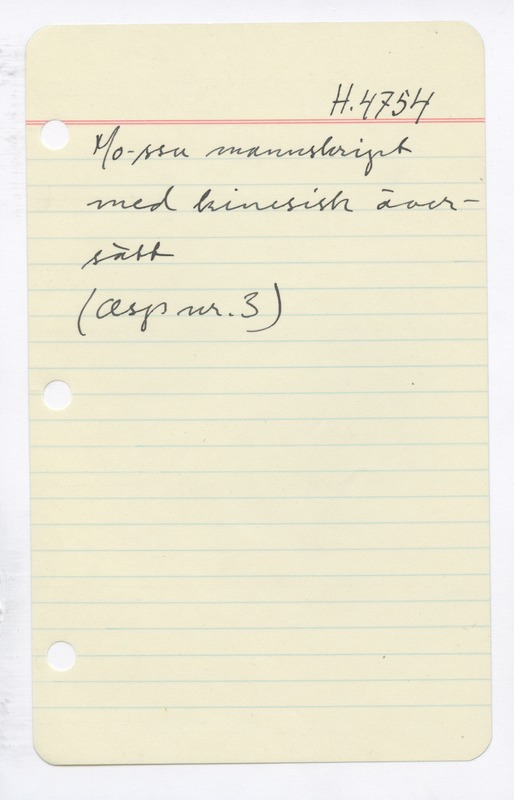 H.4754
Mo-ssu manuskript
med kinesisk över-
sätt
(Cesp nr. 3)